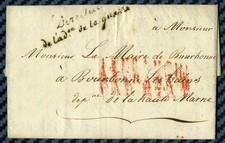 Directeur
de l'ad.on de la guerre
à Monsieur
Monsieur Le Maire de Bourbonne
à Bourbonne Les Bains
dep.t de la haute Marne